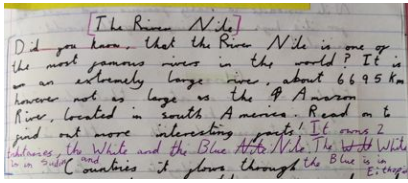 [The River Nile]
Did you know, that the River Nile is one of
the most famous rivers in the world? It is
an extremely large river, about 6695 Km
however not as large as the Amazon
River, located in south America. Read on to
find out more interesting facts! It owns 2
the White and the Blue Nile The White
is in Sudan and the Blue is in
Countries it flows through Ethiopia